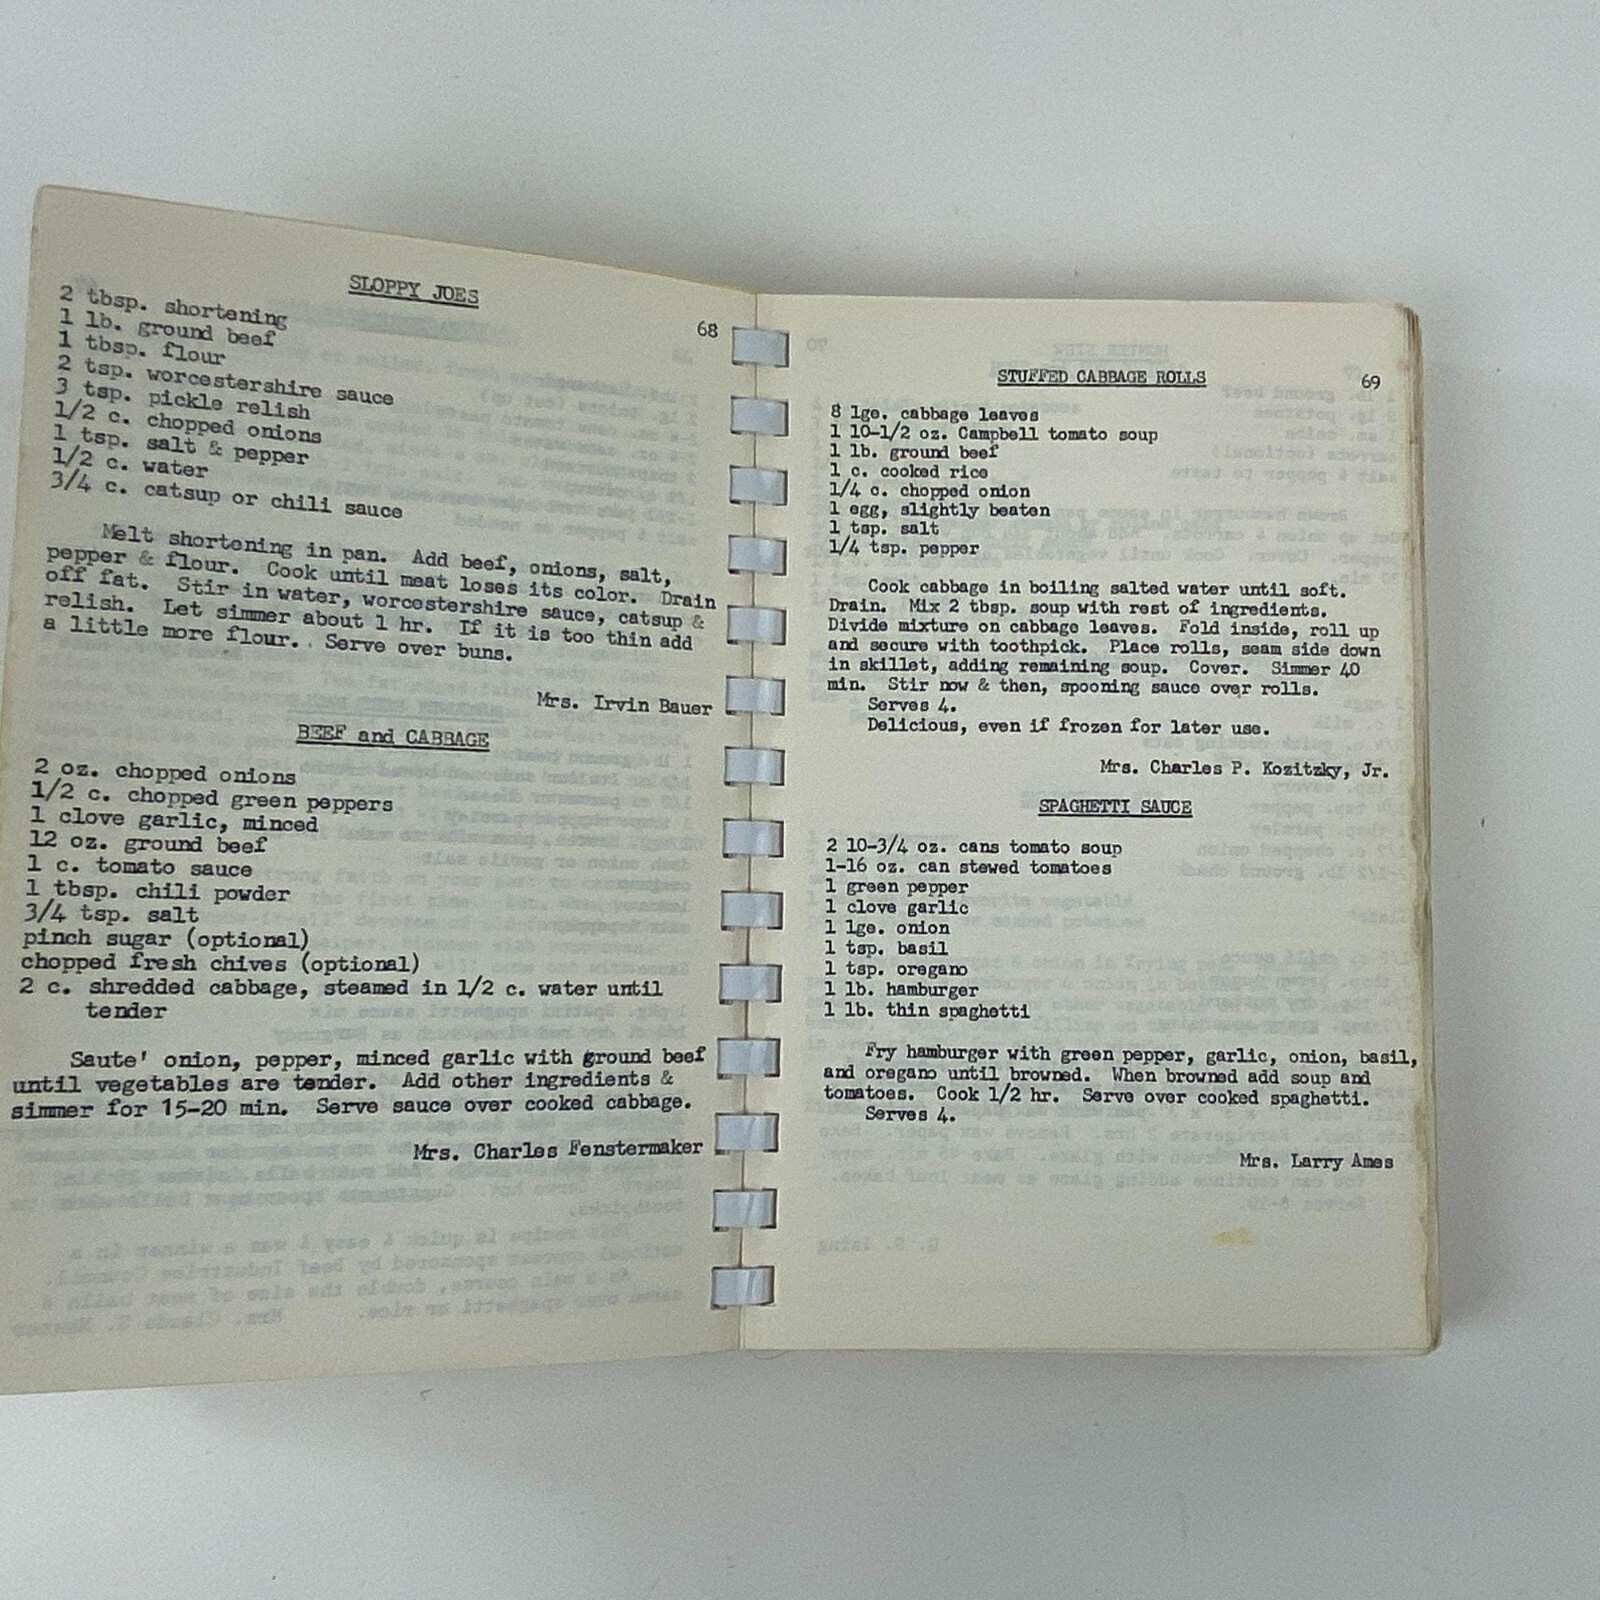 SLOPPY JOES
68
2 tbsp. shortening
1 lb. ground beef
1 tbsp. flour
2 tsp. worcestershire sauce
3 tsp. pickle relish
1/2 c. chopped onions
1 tsp. salt & pepper
1/2 c. water
3/4 c. catsup or chili sauce
Melt shortening in pan. Add beef, onions, salt,
pepper & flour. Cook until meat loses its color. Drain
off fat. Stir in water, worcestershire sauce, catsup &
relish. Let simmer about 1 hr. If it is too thin add
a little more flour. Serve over buns.
Mrs. Irvin Bauer
BEEF and CABBAGE
2 oz. chopped onions
1/2 c. chopped green peppers
1 clove garlic, minced
12 oz. ground beef
1 c. tomato sauce
1 tbsp. chili powder
3/4 tsp. salt
pinch sugar (optional)
chopped fresh chives (optional)
2 c. shredded cabbage, steamed in 1/2 c. water until
tender
Saute' onion, pepper, minced garlic with ground beef
until vegetables are tender. Add other ingredients &
simmer for 15-20 min. Serve sauce over cooked cabbage.
Mrs. Charles Fenstermaker
STUFFED CABBAGE ROLLS
69
8 lge. cabbage leaves
1 10-1/2 oz. Campbell tomato soup
1 lb. ground beef
1 c. cooked rice
1/4 c. chopped onion
1 egg, slightly beaten
1 tsp. salt
1/4 tsp. pepper
Cook cabbage in boiling salted water until soft.
Drain. Mix 2 tbsp. soup with rest of ingredients.
Divide mixture on cabbage leaves. Fold inside, roll up
and secure with toothpick. Place rolls, seam side down
in skillet, adding remaining soup. Cover. Simmer 40
min. Stir now & then, spooning sauce over rolls.
Serves 4.
Delicious, even if frozen for later use.
Mrs. Charles P. Kozitzky, Jr.
SPAGHETTI SAUCE
2 10-3/4 oz. cans tomato soup
1-16 oz. can stewed tomatoes
1 green pepper
1 clove garlic
1 lge. onion
1 tsp. basil
1 tsp. oregano
1 lb. hamburger
1 lb. thin spaghetti
Fry hamburger with green pepper, garlic, onion, basil,
and oregano until browned. When browned add soup and
tomatoes. Cook 1/2 hr. Serve over cooked spaghetti.
Serves 4.
Mrs. Larry Ames